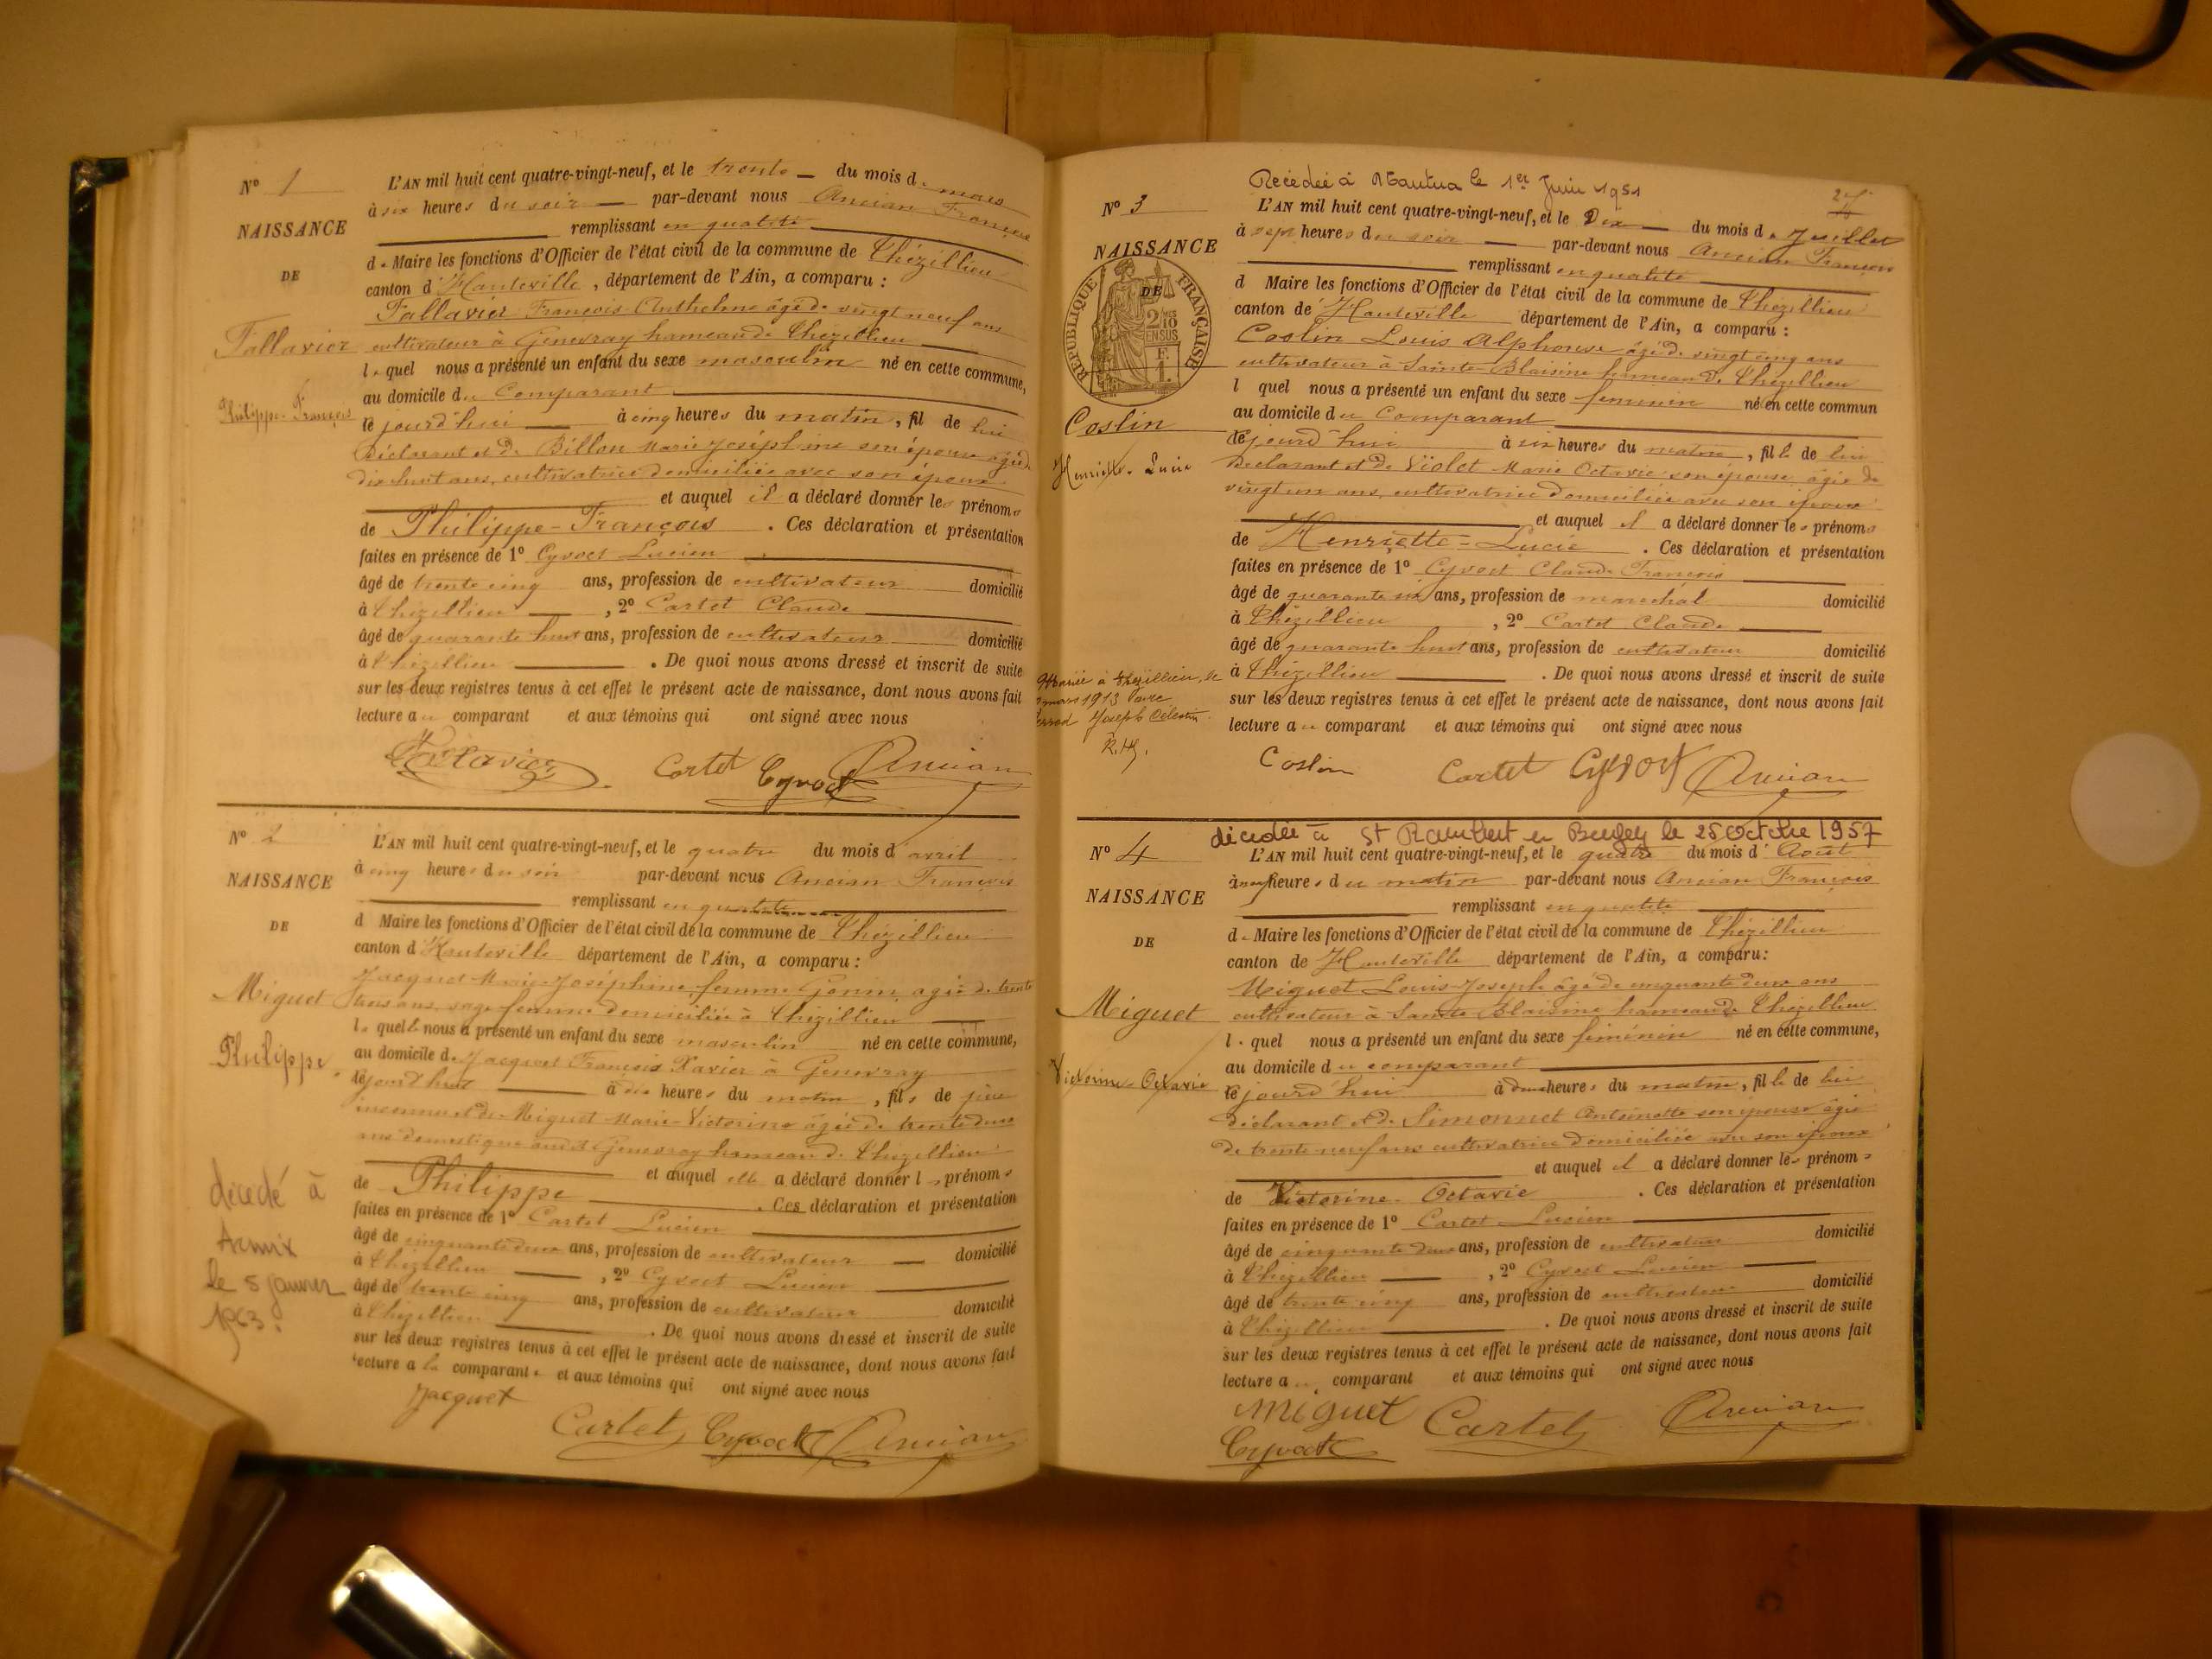 N° 1
NAISSANCE
DE
Tallavier
Philippe-François
L'AN mil huit cent quatre-vingt-neuf, et le trente du mois de mars
à six heures du soir par-devant nous Ancian François
remplissant en qualité
de Maire les fonctions d'Officier de l'état civil de la commune de Thézillieu
canton d'Hauteville, département de l'Ain, a comparu :
Tallavier François Anthelme âgé de vingt neuf ans
cultivateur à Genevray hameau de Thézillieu
lequel nous a présenté un enfant du sexe masculin né en cette commune,
au domicile du Comparant
le jourd'hui à cinq heures du matin, fil de lui
Déclarant et de Billon Marie Joséphine son épouse âgée de
dix huit ans, cultivatrice domiciliée avec son époux
et auquel il a déclaré donner les prénoms
de Philippe-François. Ces déclaration et présentation
faites en présence de 1° Cyvoct Lucien
âgé de trente cinq ans, profession de cultivateur domicilié
à Thézillieu, 2° Cartet Claude
âgé de quarante huit ans, profession de cultivateur domicilié
à Thézillieu. De quoi nous avons dressé et inscrit de suite
sur les deux registres tenus à cet effet le présent acte de naissance, dont nous avons fait
lecture au comparant et aux témoins qui ont signé avec nous
Tallavier Cartet Cyvoct Ancian
N° 2
NAISSANCE
DE
Miguet
Philippe
décédé à
Armix
le 5 janvier
1963.
L'AN mil huit cent quatre-vingt-neuf, et le quatre du mois d'avril
à cinq heures du soir par-devant nous Ancian François
remplissant en qualité
d Maire les fonctions d'Officier de l'état civil de la commune de Thézillieu
canton d'Hauteville département de l'Ain, a comparu :
Jacquet Marie Joséphine femme Genin agée de trente
ans, sage femme domiciliée à Thézillieu
lequelle nous a présenté un enfant du sexe masculin né en cette commune,
au domicile de Jacquet François Xavier à Genevray
le jourd'hui à dix heures du matin, fils de père
inconnu et de Miguet Marie-Victorine âgée de trente deux
ans domestique audit Genevray hameau de Thézillieu
et auquel elle a déclaré donner l s prénoms
de Philippe. Ces déclaration et présentation
faites en présence de 1° Cartet Lucien
âgé de cinquante deux ans, profession de cultivateur domicilié
à Thézillieu, 2° Cyvoct Lucien
âgé de trente cinq ans, profession de cultivateur domicilié
à Thézillieu. De quoi nous avons dressé et inscrit de suite
sur les deux registres tenus à cet effet le présent acte de naissance, dont nous avons fait
lecture a la comparante et aux témoins qui ont signé avec nous
Jacquet
Cartet Cyvoct Ancian
Décédée à Nantua le 1er Juin 1951
N° 3
NAISSANCE
DE
RÉPUBLIQUE FRANÇAISE
2/10
EN SUS
F.
1.
Coslin
Henriette-Lucie
Mariée à Thézillieu, le
mars 1913 avec
Joseph Célestin.
L'AN mil huit cent quatre-vingt-neuf, et le Dix du mois de Juillet
à sept heures du soir par-devant nous Ancian François
remplissant en qualité
d Maire les fonctions d'Officier de l'état civil de la commune de Thézillieu
canton de Hauteville département de l'Ain, a comparu :
Coslin Louis Alphonse âgé de vingt cinq ans
cultivateur à Sainte-Blaisine hameau de Thézillieu
l quel nous a présenté un enfant du sexe féminin né en cette commun
au domicile du Comparant
le jourd'hui à six heures du matin, fille de lui
Déclarant et de Violet Marie Octavie son épouse âgée de
vingt un ans, cultivatrice domiciliée avec son époux
et auquel il a déclaré donner les prénoms
de Henriette-Lucie. Ces déclaration et présentation
faites en présence de 1° Cyvoct Claude François
âgé de quarante six ans, profession de maréchal domicilié
à Thézillieu, 2° Cartet Claude
âgé de quarante huit ans, profession de cultivateur domicilié
à Thézillieu. De quoi nous avons dressé et inscrit de suite
sur les deux registres tenus à cet effet le présent acte de naissance, dont nous avons fait
lecture au comparant et aux témoins qui ont signé avec nous
Coslin Cartet Cyvoct Ancian
décédée à St Rambert en Bugey le 25 Octobre 1957
N° 4
NAISSANCE
DE
Miguet
Victorine-Octavie
L'AN mil huit cent quatre-vingt-neuf, et le quatre du mois d'Août
à neuf heures du matin par-devant nous Ancian François
remplissant en qualité
de Maire les fonctions d'Officier de l'état civil de la commune de Thézillieu
canton de Hauteville département de l'Ain, a comparu:
Miguet Louis-Joseph âgé de cinquante deux ans
cultivateur à Sainte Blaisine hameau de Thézillieu
lequel nous a présenté un enfant du sexe féminin né en cette commune,
au domicile du comparant
le jourd'hui à deux heures du matin, fille de lui
déclarant et de Simonnet Antoinette son épouse âgée
de trente neuf ans cultivatrice domiciliée avec son époux
et auquel il a déclaré donner les prénoms
de Victorine-Octavie. Ces déclaration et présentation
faites en présence de 1° Cartet Lucien
âgé de cinquante deux ans, profession de cultivateur domicilié
à Thézillieu, 2° Cyvoct Lucien
âgé de trente cinq ans, profession de cultivateur domicilié
à Thézillieu. De quoi nous avons dressé et inscrit de suite
sur les deux registres tenus à cet effet le présent acte de naissance, dont nous avons fait
lecture au comparant et aux témoins qui ont signé avec nous
Miguet Cartet Ancian
Cyvoct